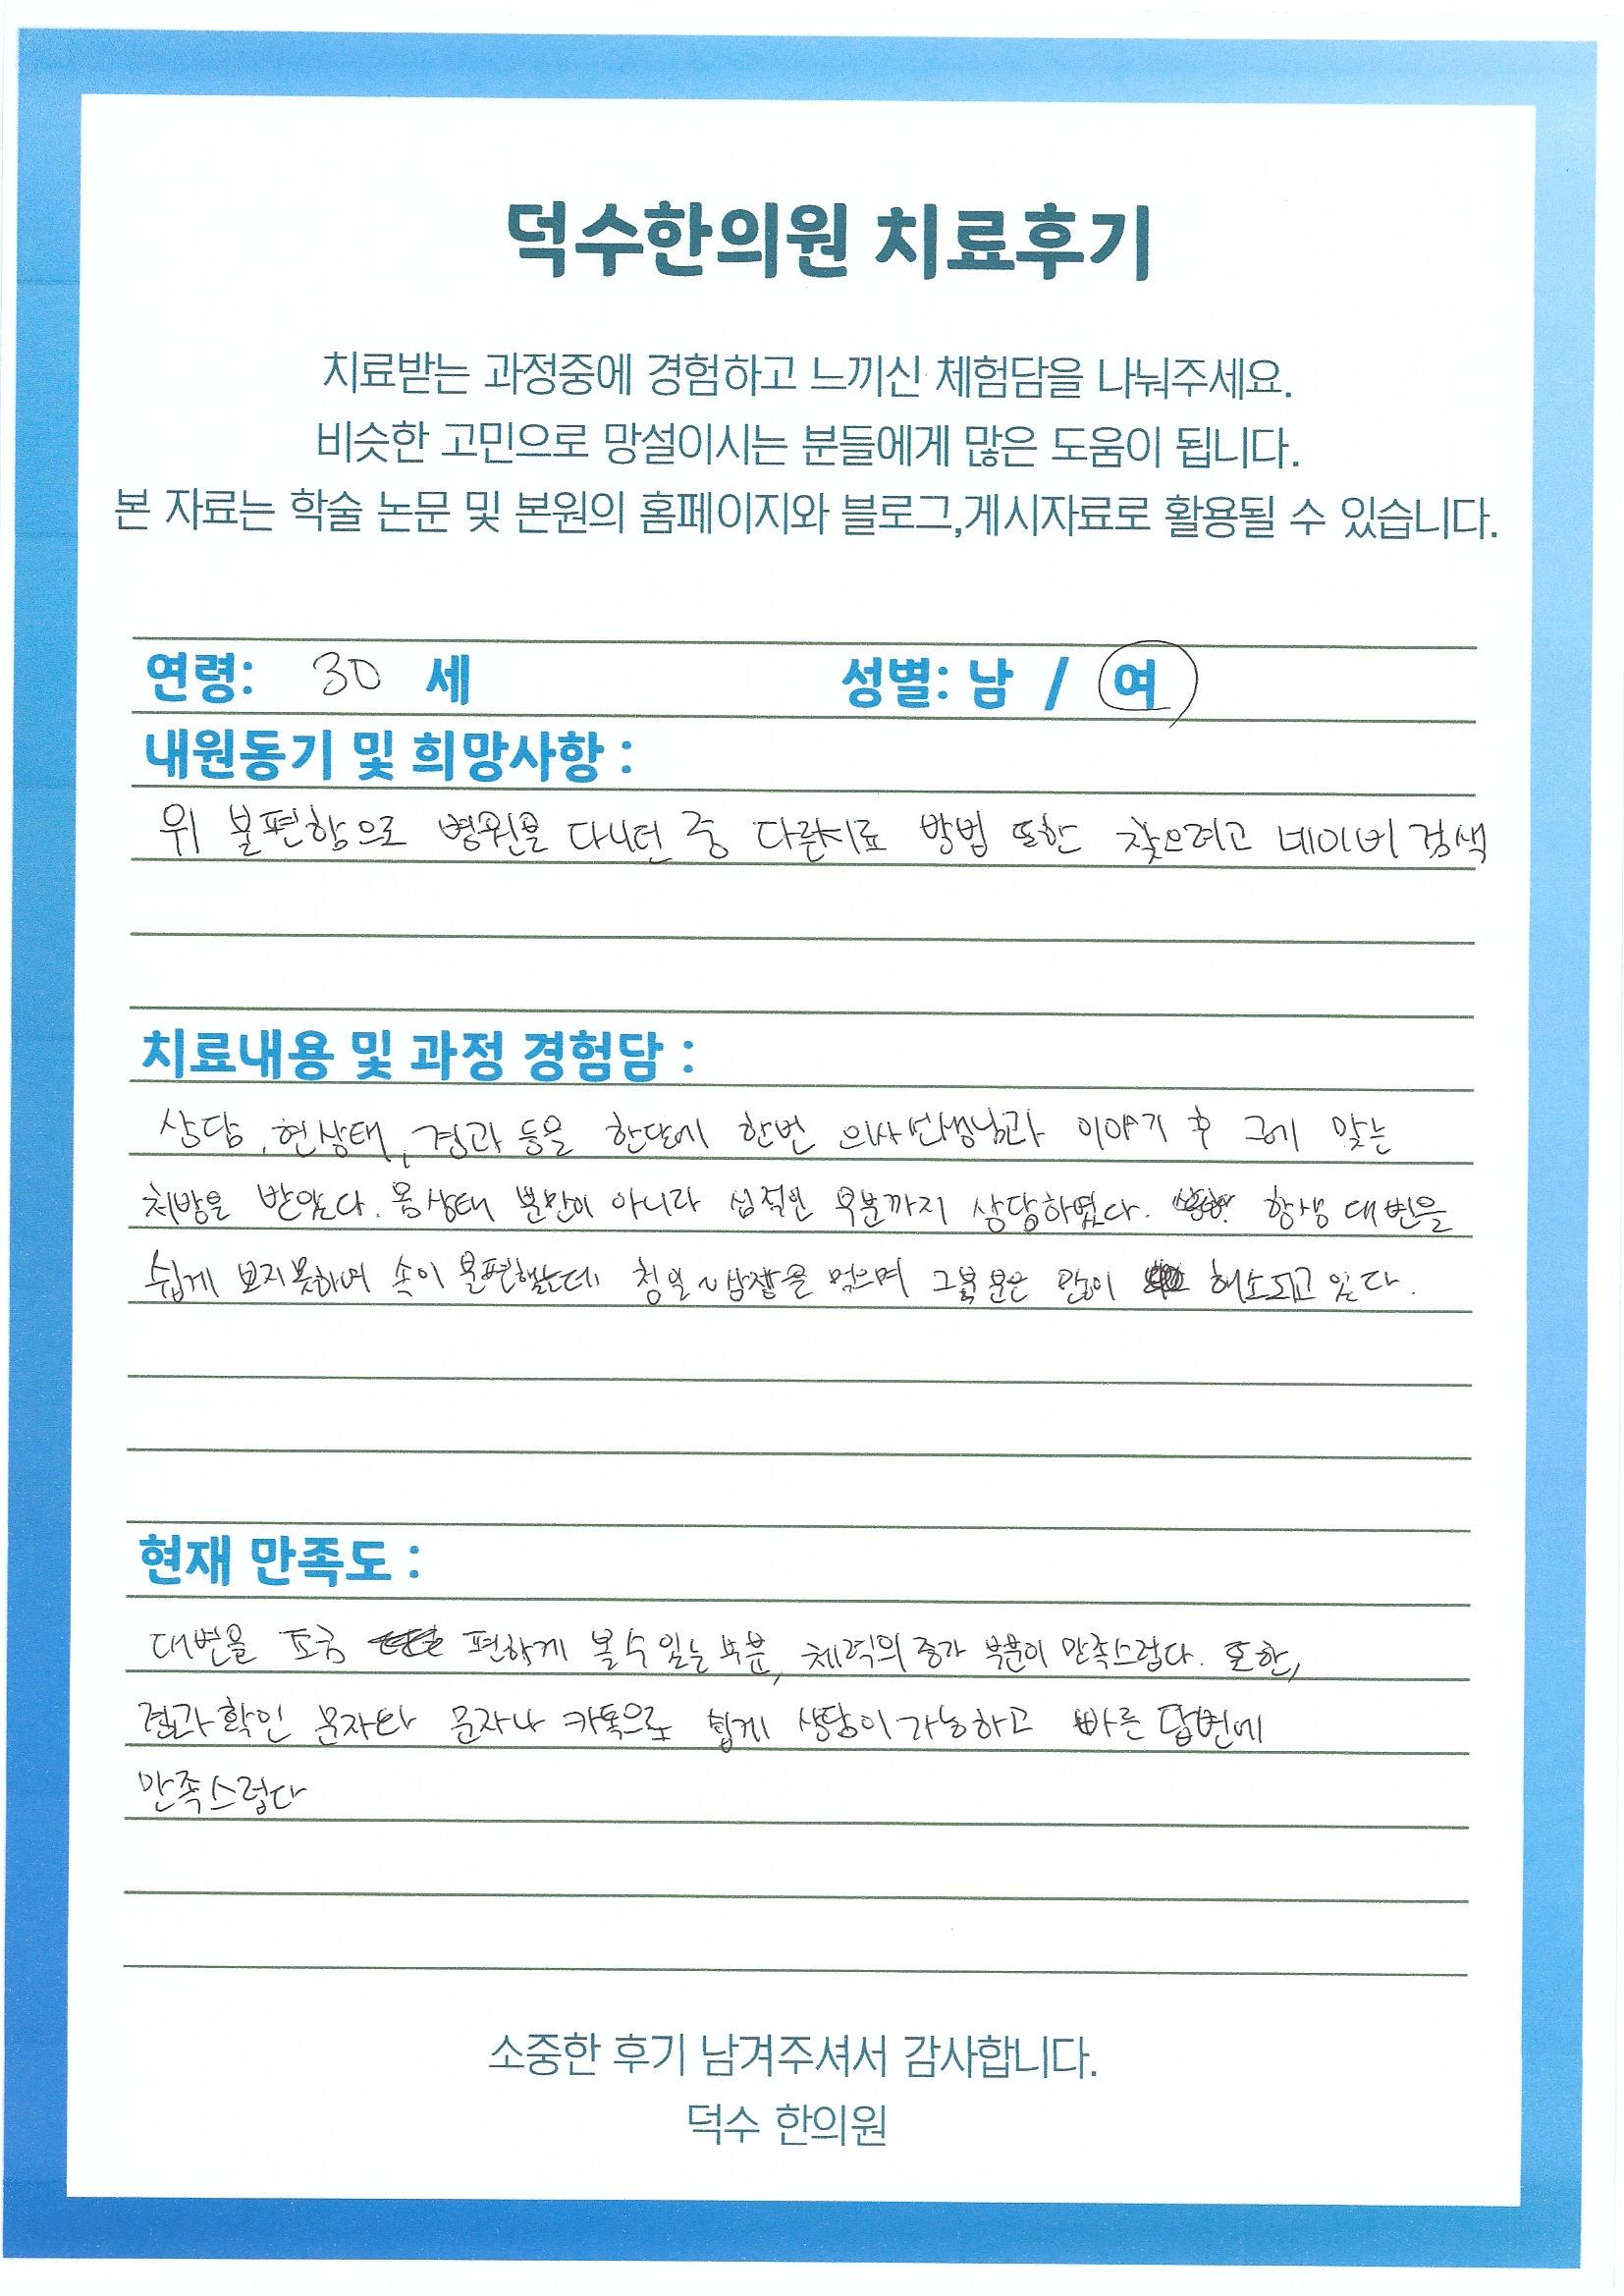 덕수한의원 치료후기
치료받는 과정중에 경험하고 느끼신 체험담을 나눠주세요.
비슷한 고민으로 망설이시는 분들에게 많은 도움이 됩니다.
본 자료는 학술 논문 및 본원의 홈페이지와 블로그,게시자료로 활용될 수 있습니다.
연령: 30 세 성별: 남 / 여
내원동기 및 희망사항 :
위 불편함으로 병원을 다니던 중 다른치료 방법 또한 찾으려고 네이버 검색
치료내용 및 과정 경험담 :
상담, 현상태, 경과 등을 한달에 한번 의사선생님과 이야기 후 그에 맞는
처방을 받았다. 몸상태 뿐만이 아니라 심적인 부분까지 상담하였다. 항상 대변을
쉽게 보지못하며 속이 불편했는데 먹으며 그부분은 많이 해소되고 있다.
현재 만족도 :
대변을 조금 편하게 볼수 있는 부분, 체력의 증가 부분이 만족스럽다. 또한,
경과확인 문자와 문자나 카톡으로 쉽게 상담이 가능하고 빠른 답변에
만족스럽다
소중한 후기 남겨주셔서 감사합니다.
덕수 한의원